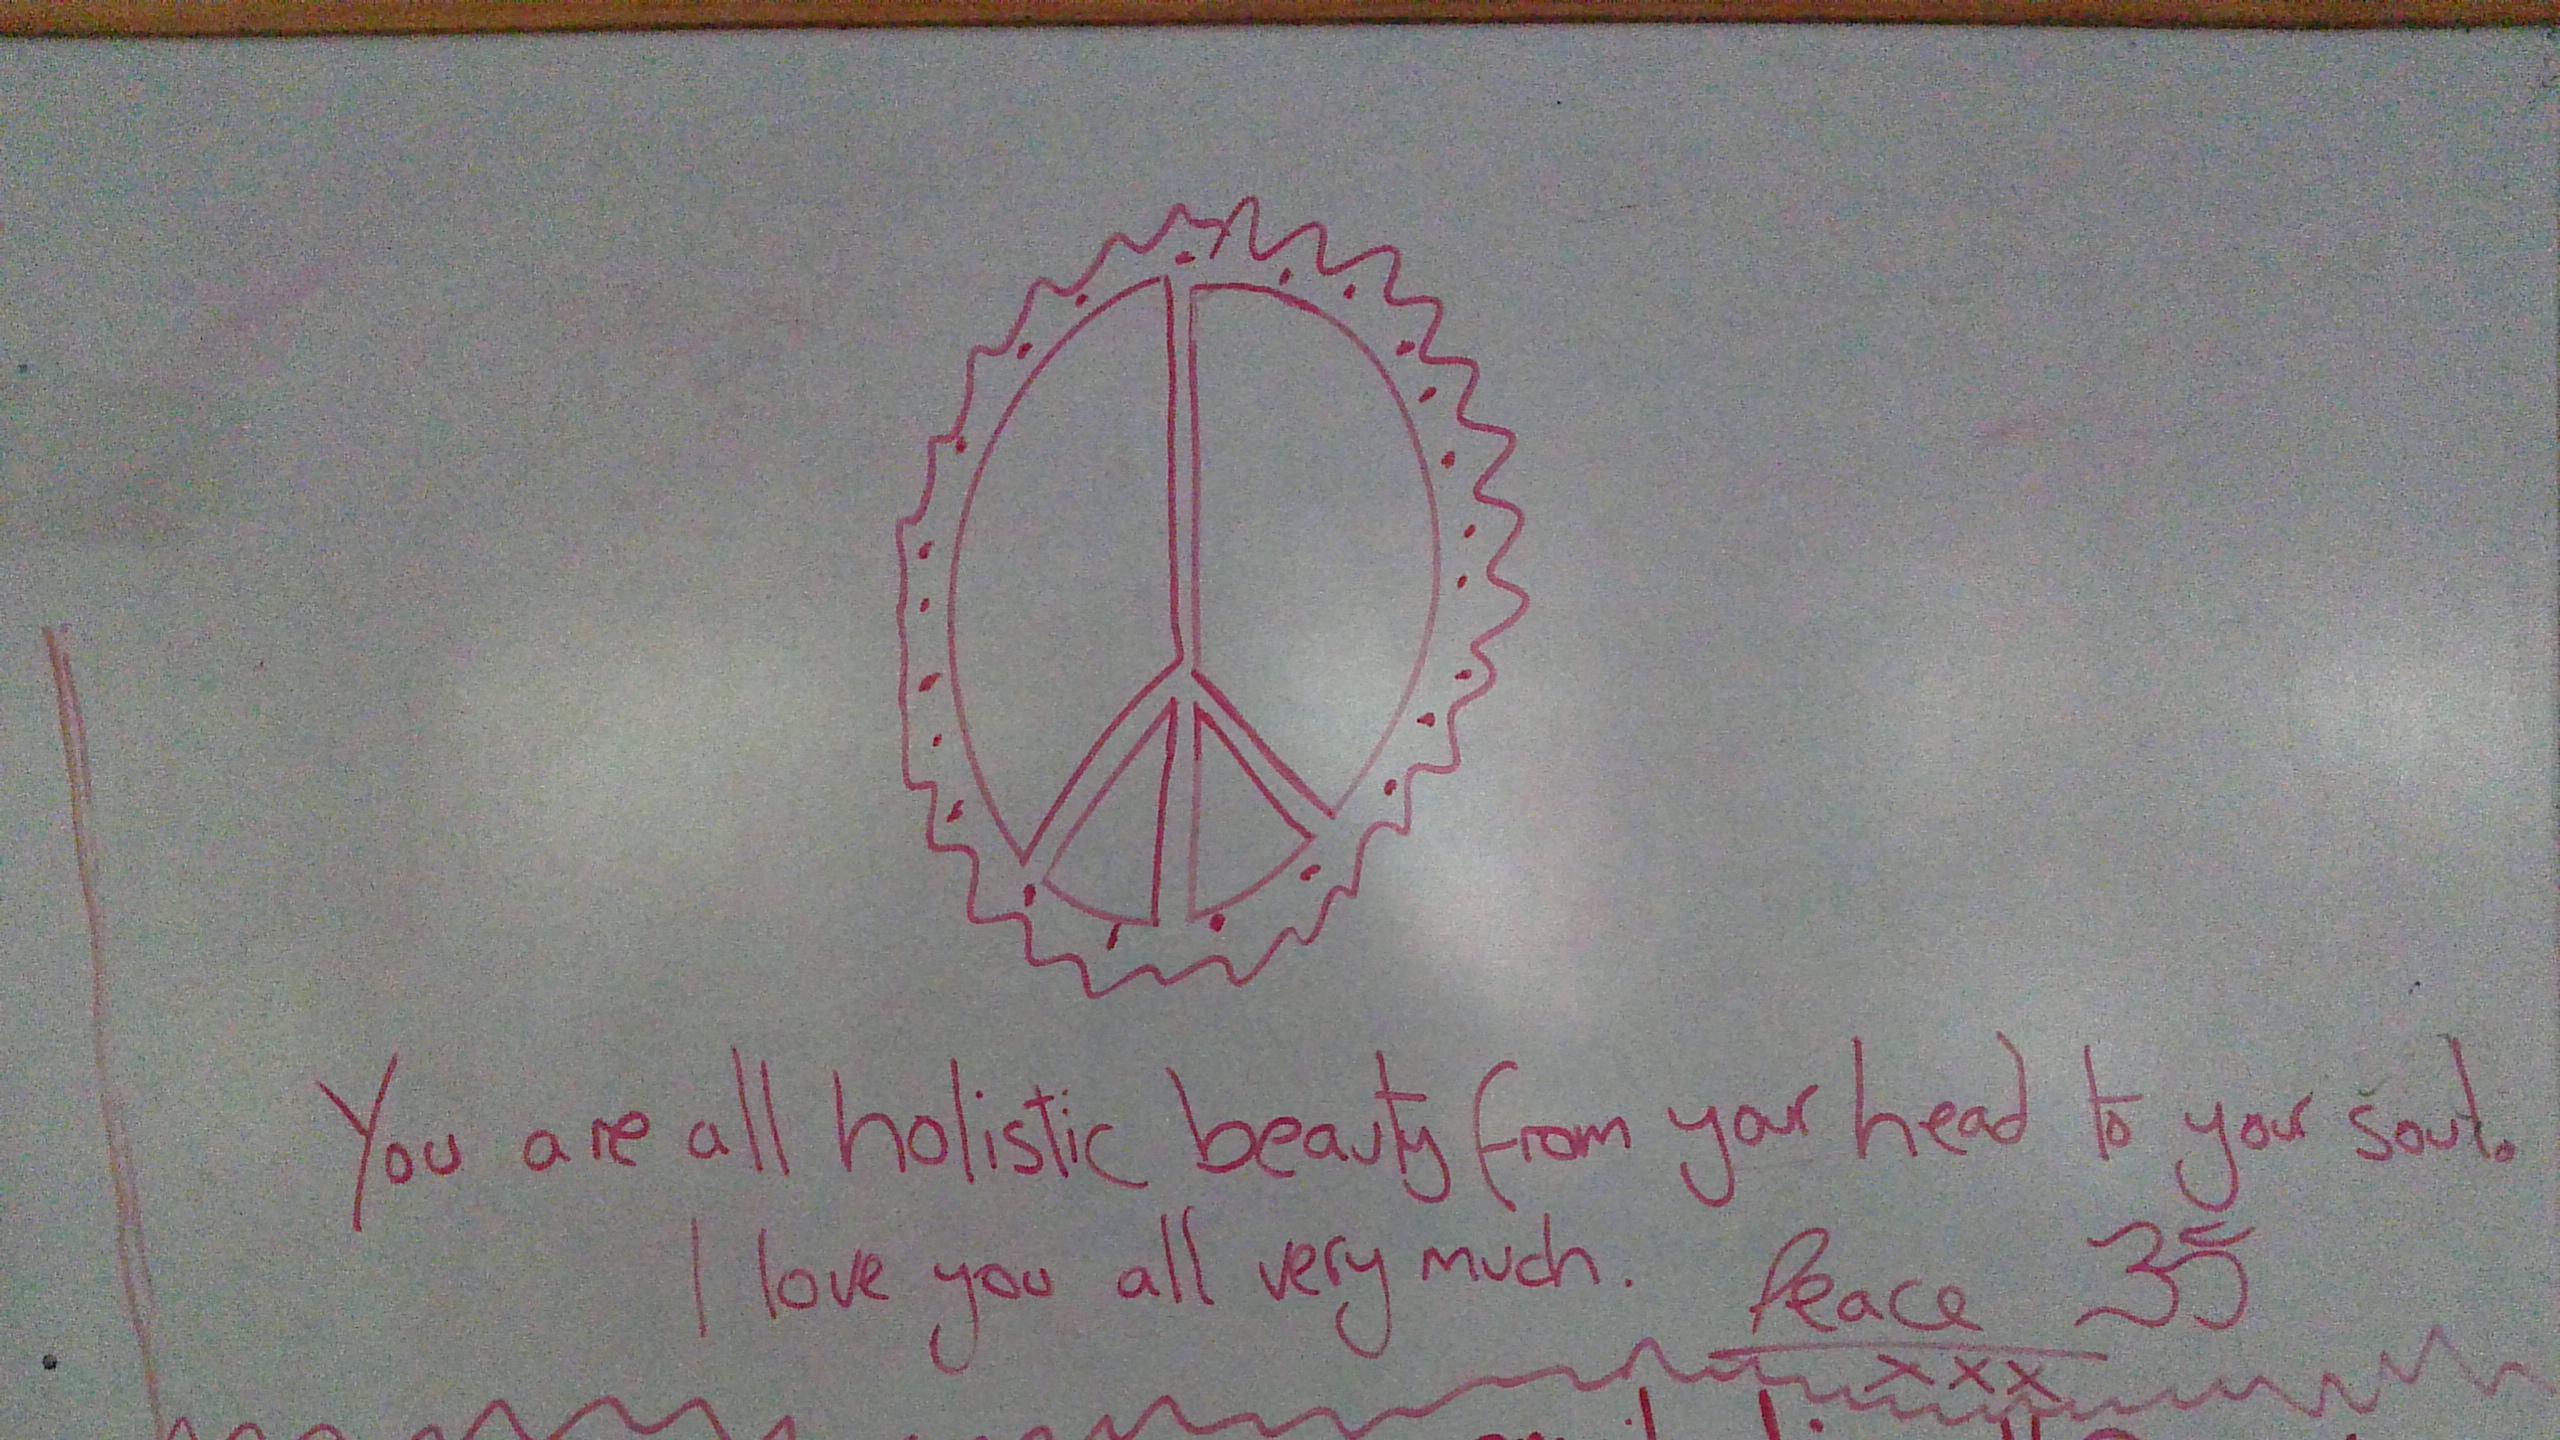 You are all holistic beauty from your head to your soul.
I love you all very much. Peace ॐ
xxx